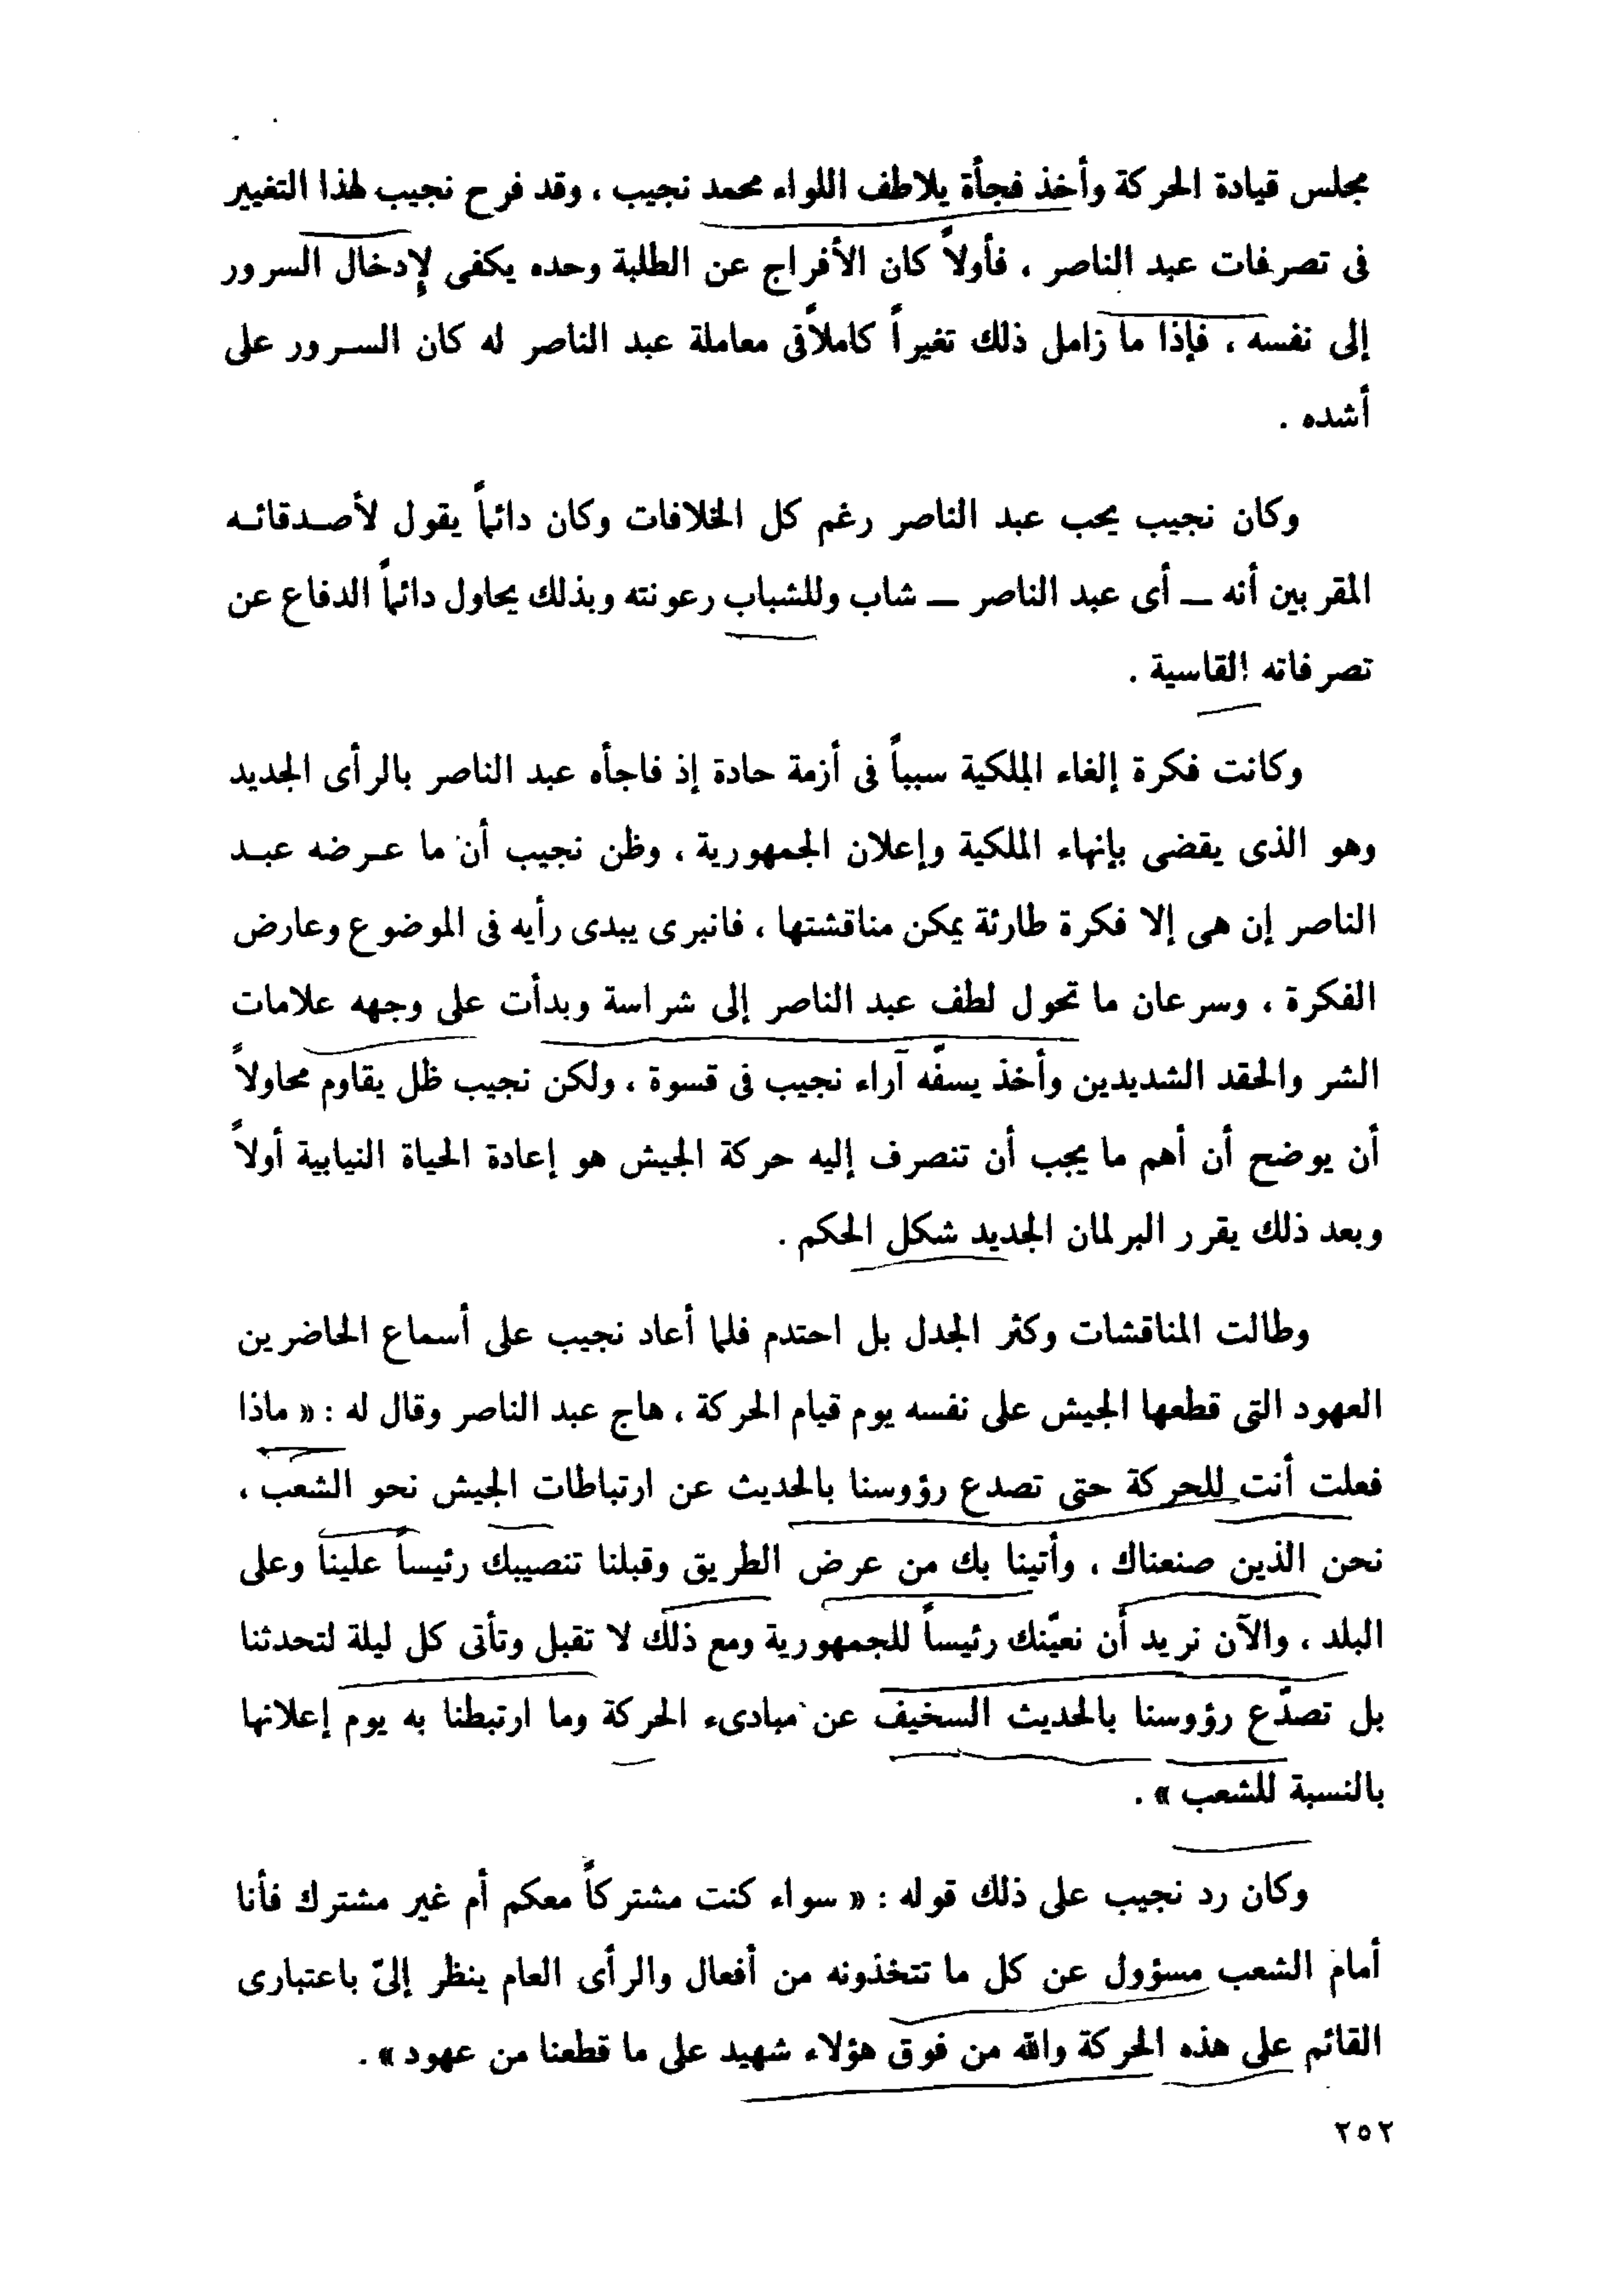 مجلس قيادة الحركة وأخذ فجأة يلاطف اللواء محمد نجيب ، وقد فرح نجيب لهذا التغيير
فى تصرفات عبد الناصر ، فأولاً كان الأفراج عن الطلبة وحده يكفى لإدخال السرور
إلى نفسه ، فإذا ما زامل ذلك تغيراً كاملاً فى معاملة عبد الناصر له كان السرور على
أشده .
وكان نجيب يحب عبد الناصر رغم كل الخلافات وكان دائماً يقول لأصدقائه
المقربين أنه ــ أى عبد الناصر ــ شاب وللشباب رعونته وبذلك يحاول دائماً الدفاع عن
تصرفاته القاسية .
وكانت فكرة إلغاء الملكية سبباً فى أزمة حادة إذ فاجأه عبد الناصر بالرأى الجديد
وهو الذى يقضى بإنهاء الملكية وإعلان الجمهورية ، وظن نجيب أن ما عرضه عبد
الناصر إن هى إلا فكرة طارئة يمكن مناقشتها ، فانبرى يبدى رأيه فى الموضوع وعارض
الفكرة ، وسرعان ما تحول لطف عبد الناصر إلى شراسة وبدأت على وجهه علامات
الشر والحقد الشديدين وأخذ يسفّه آراء نجيب فى قسوة ، ولكن نجيب ظل يقاوم محاولاً
أن يوضح أن أهم ما يجب أن تنصرف إليه حركة الجيش هو إعادة الحياة النيابية أولاً
وبعد ذلك يقرر البرلمان الجديد شكل الحكم .
وطالت المناقشات وكثر الجدل بل احتدم فلما أعاد نجيب على أسماع الحاضرين
العهود التى قطعها الجيش على نفسه يوم قيام الحركة ، هاج عبد الناصر وقال له : « ماذا
فعلت أنت للحركة حتى تصدع رؤوسنا بالحديث عن ارتباطات الجيش نحو الشعب ،
نحن الذين صنعناك ، وأتينا بك من عرض الطريق وقبلنا تنصيبك رئيساً علينا وعلى
البلد ، والآن نريد أن نعيّنك رئيساً للجمهورية ومع ذلك لا تقبل وتأتى كل ليلة لتحدثنا
بل تصدّع رؤوسنا بالحديث السخيف عن مبادىء الحركة وما ارتبطنا به يوم إعلانها
بالنسبة للشعب » .
وكان رد نجيب على ذلك قوله : « سواء كنت مشتركاً معكم أم غير مشترك فأنا
أمام الشعب مسؤول عن كل ما تتخذونه من أفعال والرأى العام ينظر إلىّ باعتبارى
القائم على هذه الحركة والله من فوق هؤلاء شهيد على ما قطعنا من عهود » .
٢٥٢